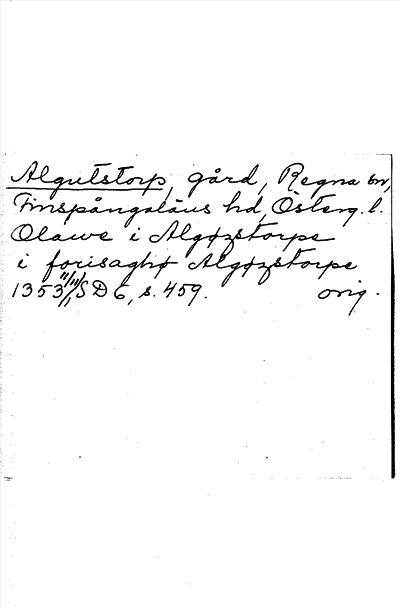 Algutstorp, gård, Regna sn,
Finspångaläns hd, Österg. l.
Olawe i Algøzstorpe
i forisaghþ Algøzstorpe
1353 11/11 SD 6, s. 459. orig.